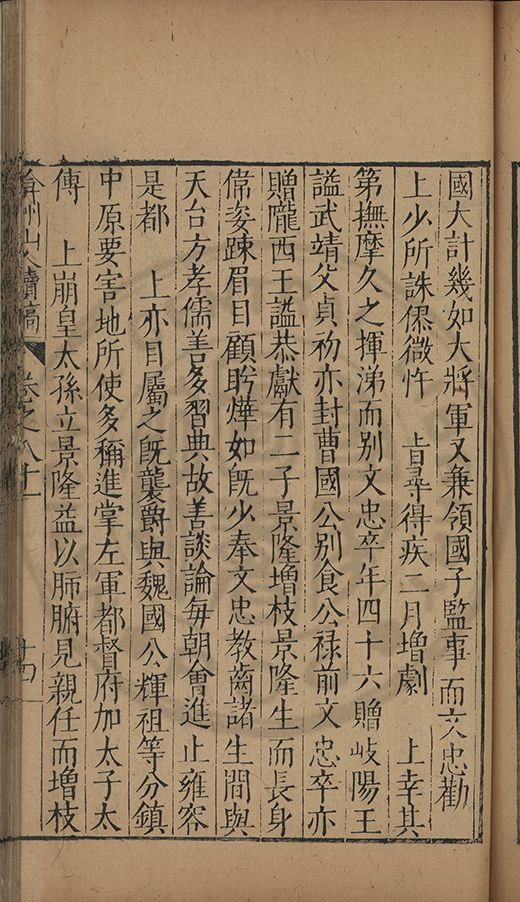 國大計幾如大將軍又兼領國子監事而文忠勸
上少所誅僇微忤　旨尋得疾二月增劇　上幸其
第撫摩久之揮涕而别文忠卒年四十六贈岐陽王
謚武靖父貞初亦封曹國公别食公祿前文忠卒亦
贈隴西王謚恭獻有二子景隆增枝景隆生而長身
偉姿踈眉目顧盻燁如旣少奉文忠教齒諸生間與
天台方孝儒善多習典故善談論每朝會進止雍容
是都　上亦目屬之旣襲爵與魏國公輝祖等分鎮
中原要害地所使多稱進掌左軍都督府加太子太
傅　上崩皇太孫立景隆益以肺腑見親任而增枝
弇州山人續稿　卷之八十一　十四